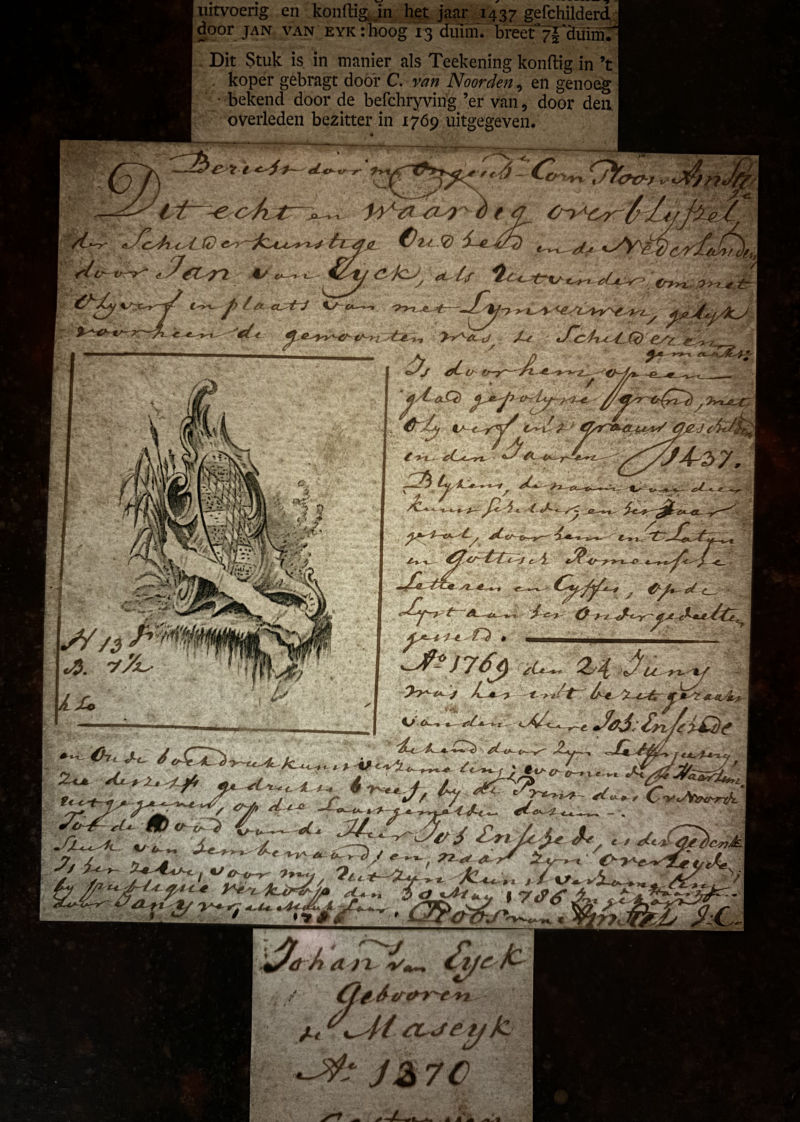 uitvoerig en konſtig in het jaar 1437 geſchilderd
door JAN VAN EYK: hoog 13 duim. breet 7½ duim.
Dit Stuk is in manier als Teekening konſtig in 't
koper gebragt door C. van Noorden, en genoeg
bekend door de beſchryving 'er van, door den
overleden bezitter in 1769 uitgegeven.
Bericht door my Ongesch. Corn Ploos v Amstel
Dit echt en waardig overblyfzel,
der Schilderkunstige Oudheid in de Nederlanden,
door Jan van Eyck, als Uitvinder, om met
Olyverf in plaats van met Lymverwen, gelyk
voorheen de gewoonten was, te Schilderen
gemaakt:
Is door hem, op een
glad gepolyste grond, met
Oly verf in't graauw geschildert
in den Jaaren 1437.
Blykens, de naam van dien
kunst schilder, en het Jaar
getal, door hem in 't Latyn
in Gottisch Romeinsche
Letteren en Cyffer, op de
Lyst aan het Onder gedeelten
gesteld.
H 13 d
B. 7½
Ao 1769 den 24 Juny
was het in't bezit geraakt
van den Heere Joh: Enschede
bekend door zyn Lettergietery,
en Oude boekdrukkunst verzameling; woonende te Haarlem.
Zie deszelfs gedrukte brief, by de Prent door C v Noorde
uitgegeeven, op die Laastgemelden datum.
Tot de Dood van de Heer Joh Enschede, is dit gedenk
Stuk van hem bewaard, en, naar zyn overleyde,
Is het zelve, voor my, uit zyn kunst verzameling
by publique verkoop den 30 May 1786 In gekocht
door Jan Yver,
1786. Ploos van Amstel J.C.
Johan van Eyck
Gebooren
te Maseyk
Ao 1370
Gestorven